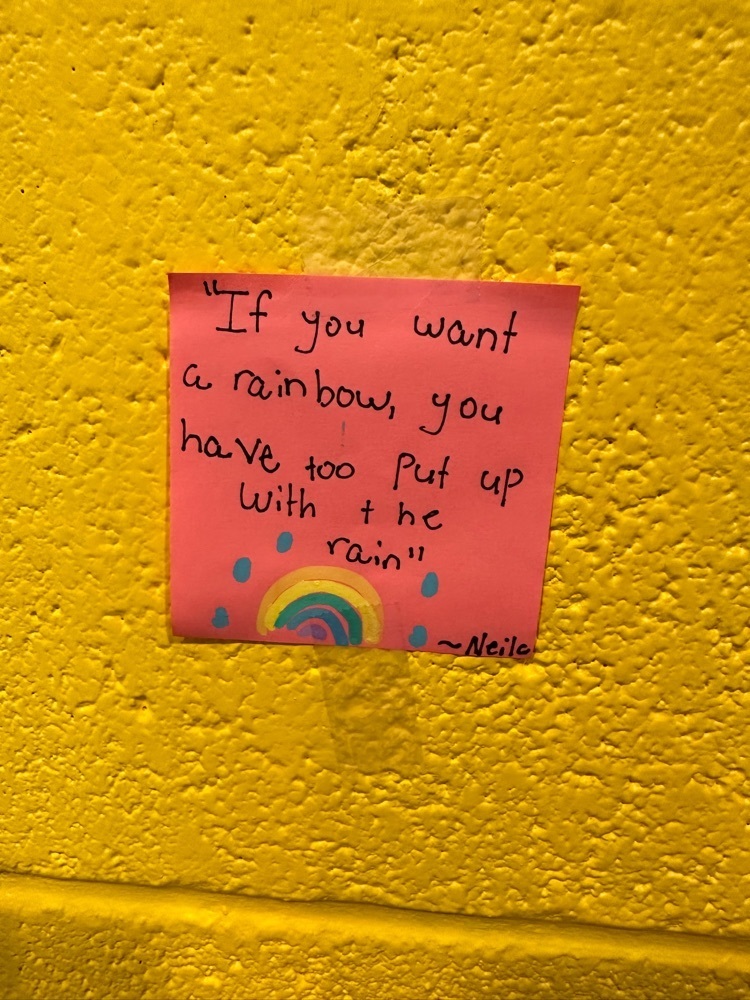 "If you want
a rainbow, you
have too put up
with the
rain"
~Neila